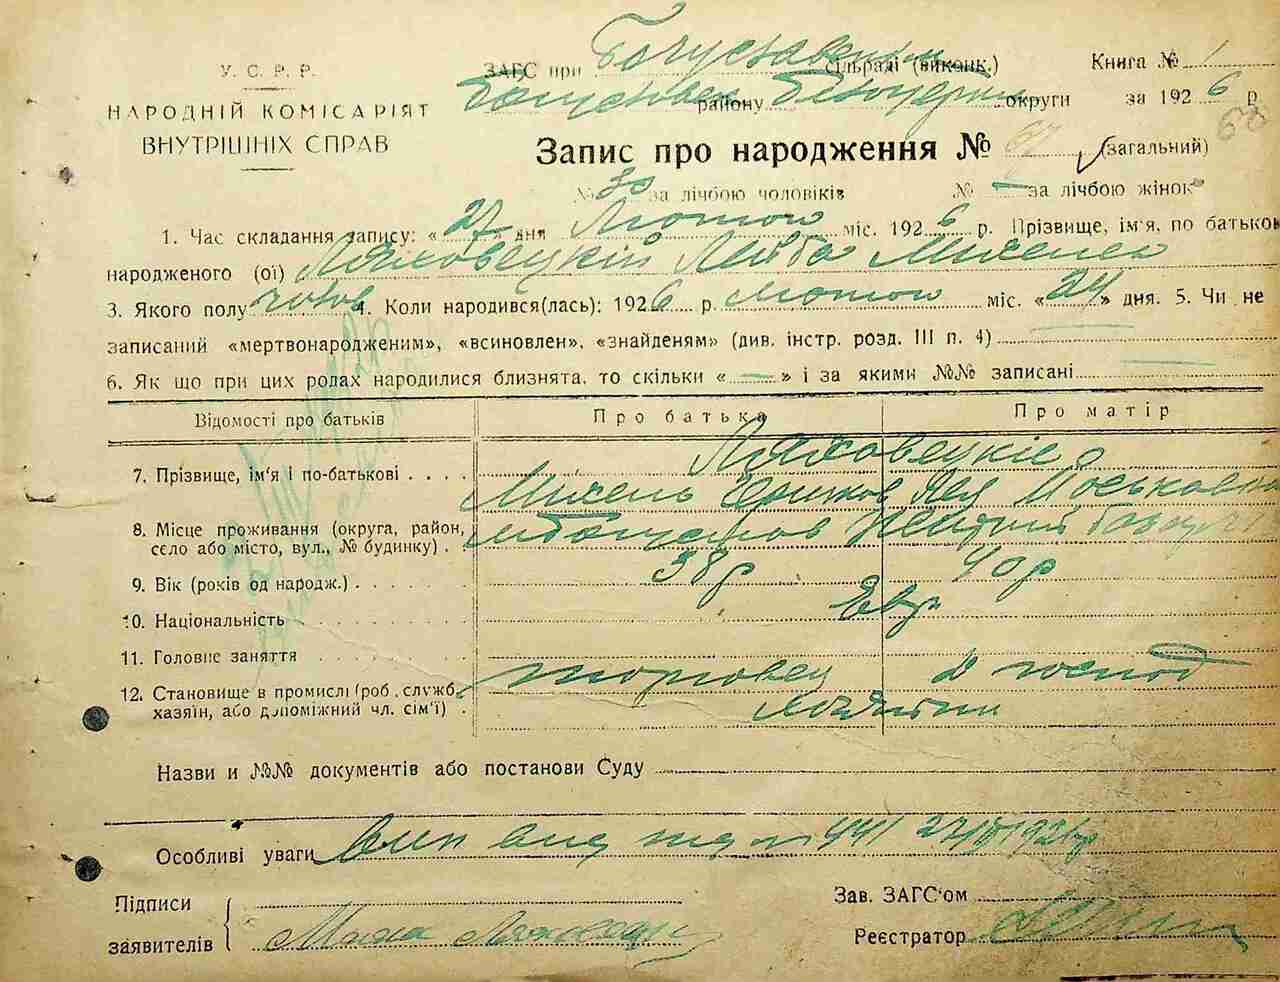 У. С. Р. Р.
НАРОДНІЙ КОМІСАРІЯТ
ВНУТРІШНІХ СПРАВ
ЗАГС при Богуславськ сільраді (виконк.) Книга № 1
району округи за 1926 р.
68
Запис про народження № 67 (загальний)
№ 30 за лічбою чоловіків № – за лічбою жінок
1. Час складання запису: «27» дня Лютого міс. 1926 р. Прізвище, ім'я, по батькові
народженого (ої) Ляховецкій Лейба Михелев
3. Якого полу чолов 4. Коли народився(лась): 1926 р. Лютого міс. «24» дня. 5. Чи не
записаний «мертвонародженим», «всиновлен», «знайденям» (див. інстр. розд. III п. 4)
6. Як що при цих родах народилися близнята, то скільки « — » і за якими №№ записані
Відомості про батьків Про батька Про матір
7. Прізвище, ім'я і по-батькові Ляховецкіе
Михель Лея Моськовна
8. Місце проживання (округа, район, м Богуслав
село або місто, вул., № будинку)
9. Вік (років од народж.) 38р 40р
10. Національність Евр
11. Головне заняття торговец д господ
12. Становище в промислі (роб., служб.,
хазяїн, або допоміжний чл. сім'ї)
Назви и №№ документів або постанови Суду
Особливі уваги
Підписи
заявителів
Зав. ЗАГС'ом
Реєстратор